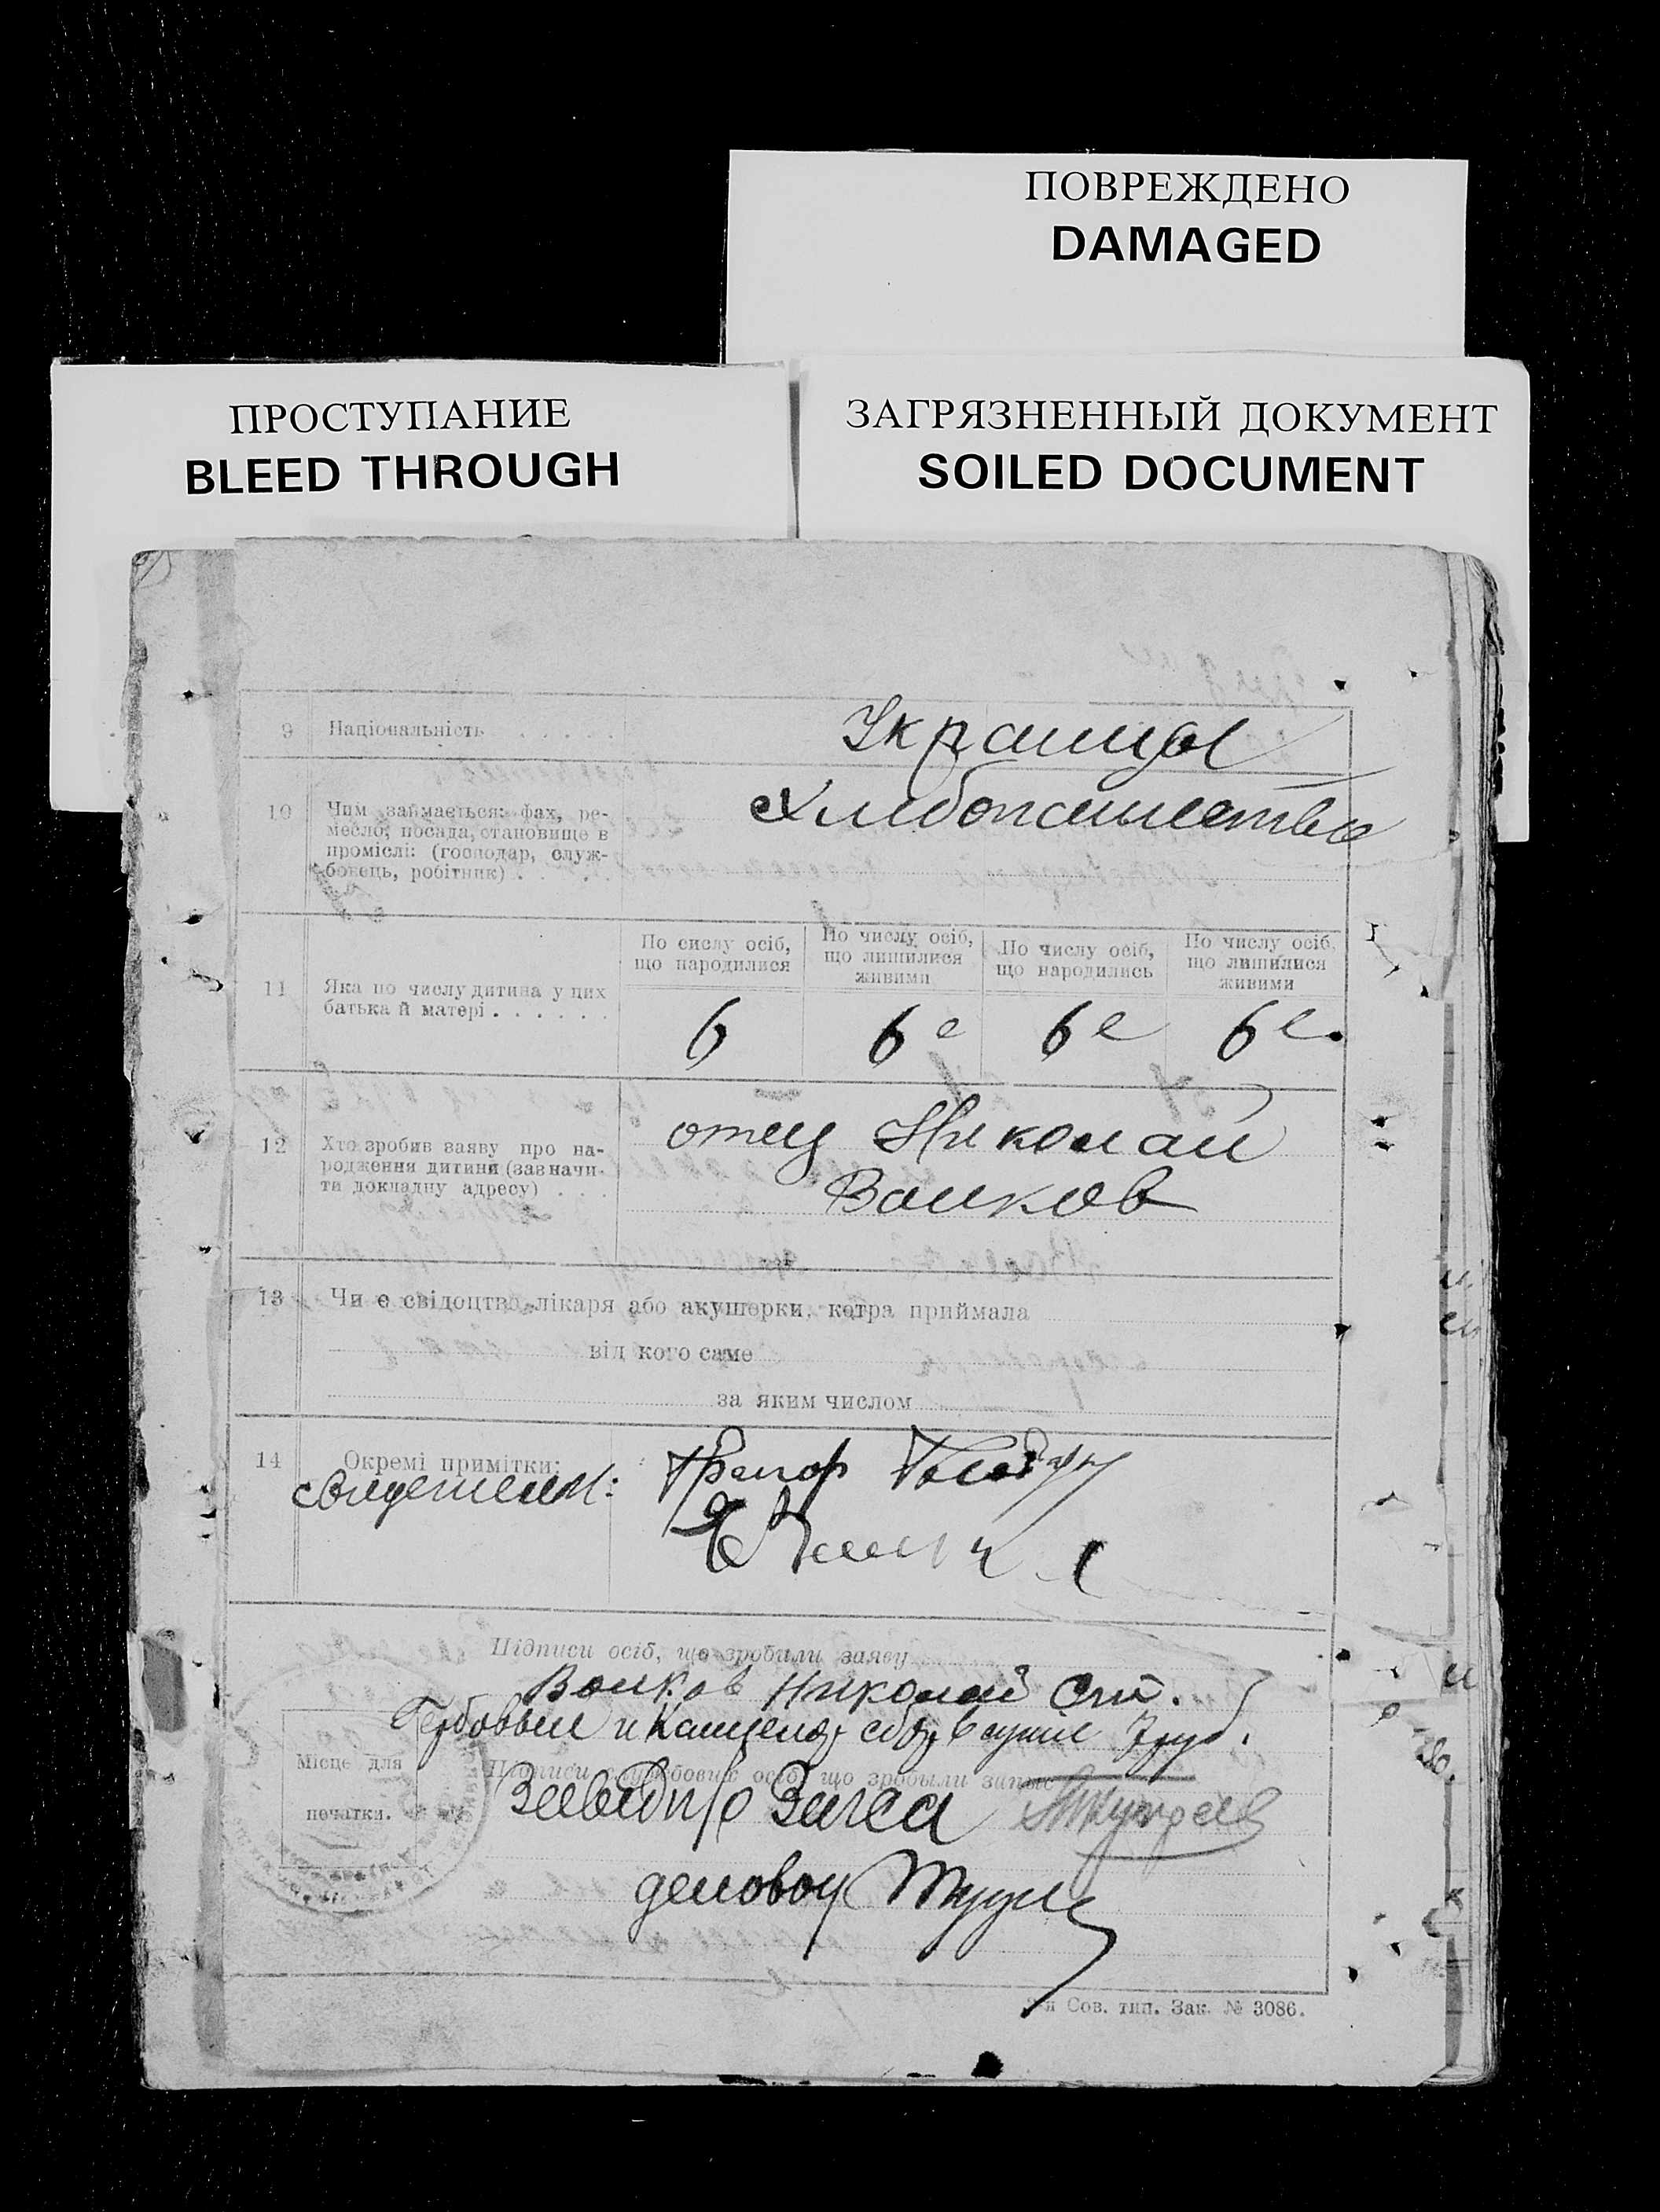 ПОВРЕЖДЕНО
DAMAGED
ПРОСТУПАНИЕ
BLEED THROUGH
ЗАГРЯЗНЕННЫЙ ДОКУМЕНТ
SOILED DOCUMENT
9 Національність . . . . .
Украинцы
10 Чим займається: фах, ре-
месло, посада, становище в
проміслі: (господар, служ-
бовець, робітник) . . . .
Хлибопашество
11 Яка по числу дитина у цих
батька й матері . . . . . .
По сислу осіб,
що народилися
По числу осіб,
що лишилися
живими
По числу осіб,
що народились
По числу осіб,
що лишилися
живими
6 6е 6е 6е.
12 Хто зробив заяву про на-
родження дитини (зазначи-
ти докладну адресу) . . .
отец Николай
Волков
13 Чи є свідоцтво лікаря або акушерки, котра приймала
від кого саме
за яким числом
14 Окремі примітки:
свидетели:
Підписи осіб, що зробили заяву
Волков Николай
Гербовый и Канцеляр сбор в сумме 7 руб.
Місце для
печатки.
Підписи службових осіб що зробыли запис
Завідпо Загса
деловод
2-я Сов. тип. Зак. № 3086.